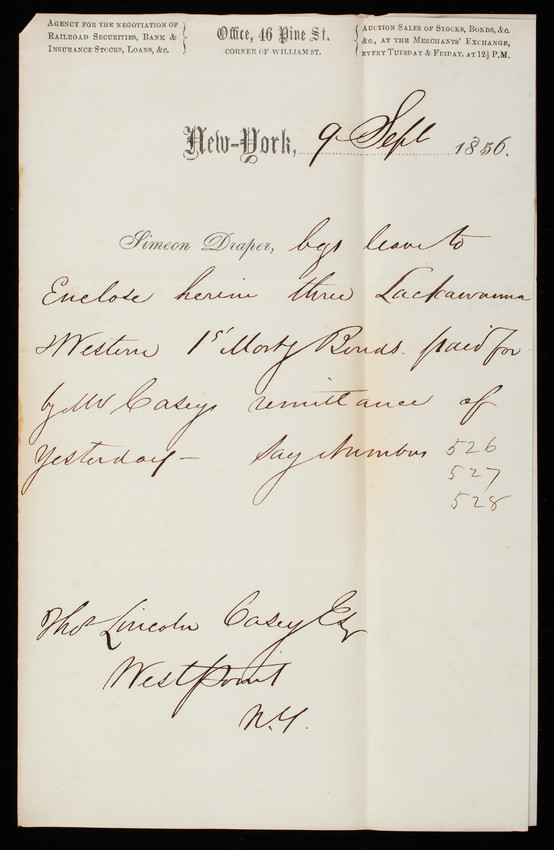 AGENCY FOR THE NEGOTIATION OF
RAILROAD SECURITIES, BANK &
INSURANCE STOCKS, LOANS, &c.
Office, 46 Pine St.
CORNER OF WILLIAM ST.
AUCTION SALES OF STOCKS, BONDS, &c.
&c., AT THE MERCHANTS' EXCHANGE,
EVERY TUESDAY & FRIDAY, AT 12½ P.M.
New-York, 9 Sept 1856.
Simeon Draper, begs leave to
Enclose herein three Lackawanna
Western 1st Mortg Bonds. paid for
by Mr Caseys remittance of
Yesterday — Say Numbers 526
527
528
Thos Lincoln Casey Esq
West Point
N.Y.